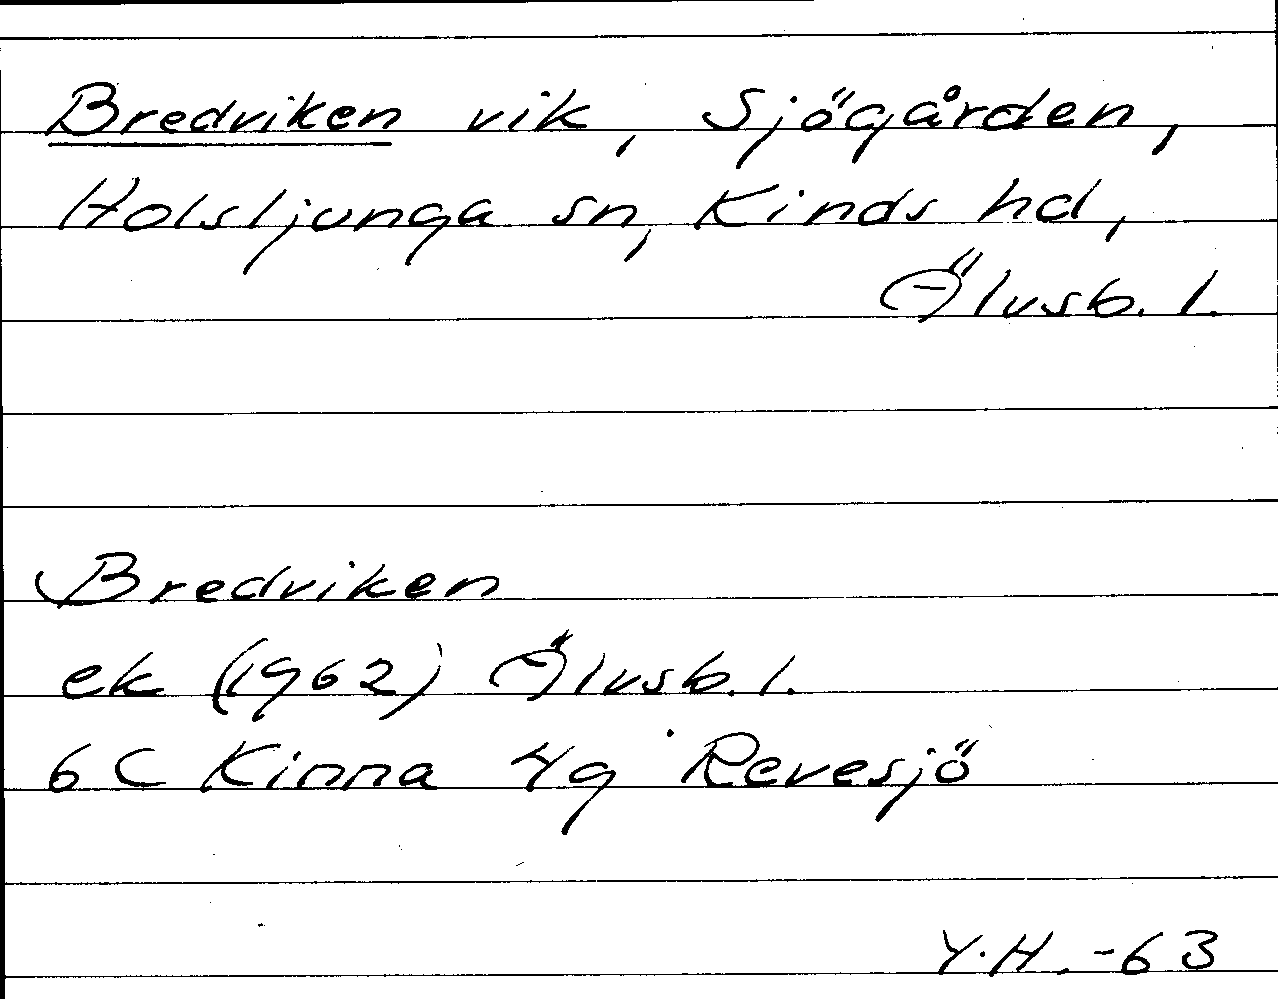 Bredviken vik, Sjögården,
Holsljunga sn, Kinds hd,
Älvsb. l.
Bredviken
ek (1962) Älvsb. l.
6 C Kinna 4g Revesjö
Y.H. -63